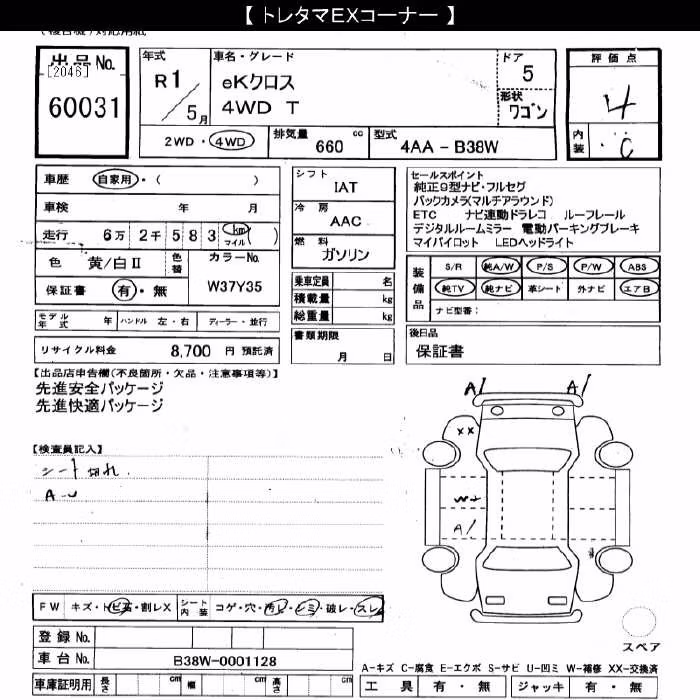 【 トレタマEXコーナー 】
出品No.
[2046]
60031
年式
R1/5月
車名・グレード
eKクロス
4WD T
ドア
5
形状
ワゴン
評価点
4
内装
C
2WD・4WD
排気量 cc
660
型式
4AA - B38W
車歴 自家用・( )
車検 年 月
走行 6万 2千 5 8 3 (km マイル)
色 黄/白Ⅱ
色替
カラーNo.
W37Y35
保証書 有・無
モデル年式 年 ハンドル 左・右 ディーラー・並行
リサイクル料金 8,700 円 預託済
シフト
IAT
冷房
AAC
燃料
ガソリン
乗車定員 名
積載量 kg
総重量 kg
書類期限
月 日
セールスポイント
純正9型ナビ・フルセグ
バックカメラ(マルチアラウンド)
ETC ナビ連動ドラレコ ルーフレール
デジタルルームミラー 電動パーキングブレーキ
マイパイロット LEDヘッドライト
装備品
S/R 純A/W P/S P/W ABS
純TV 純ナビ 革シート 外ナビ エアB
ナビ型番:
後日品
保証書
【出品店申告欄(不良箇所・欠品・注意事項等)】
先進安全パッケージ
先進快適パッケージ
【検査員記入】
シート切れ.
A-U
A1
A1
XX
A1
FW キズ・トビ石・割レX シート内装 コゲ・穴・汚レ・シミ・破レ・スレ
登録No.
車台No. B38W-0001128
車庫証明用 長さ cm 幅 cm 高さ cm
スペア
A-キズ C-腐食 E-エクボ S-サビ U-凹ミ W-補修 XX-交換済
工具 有・無 ジャッキ 有・無